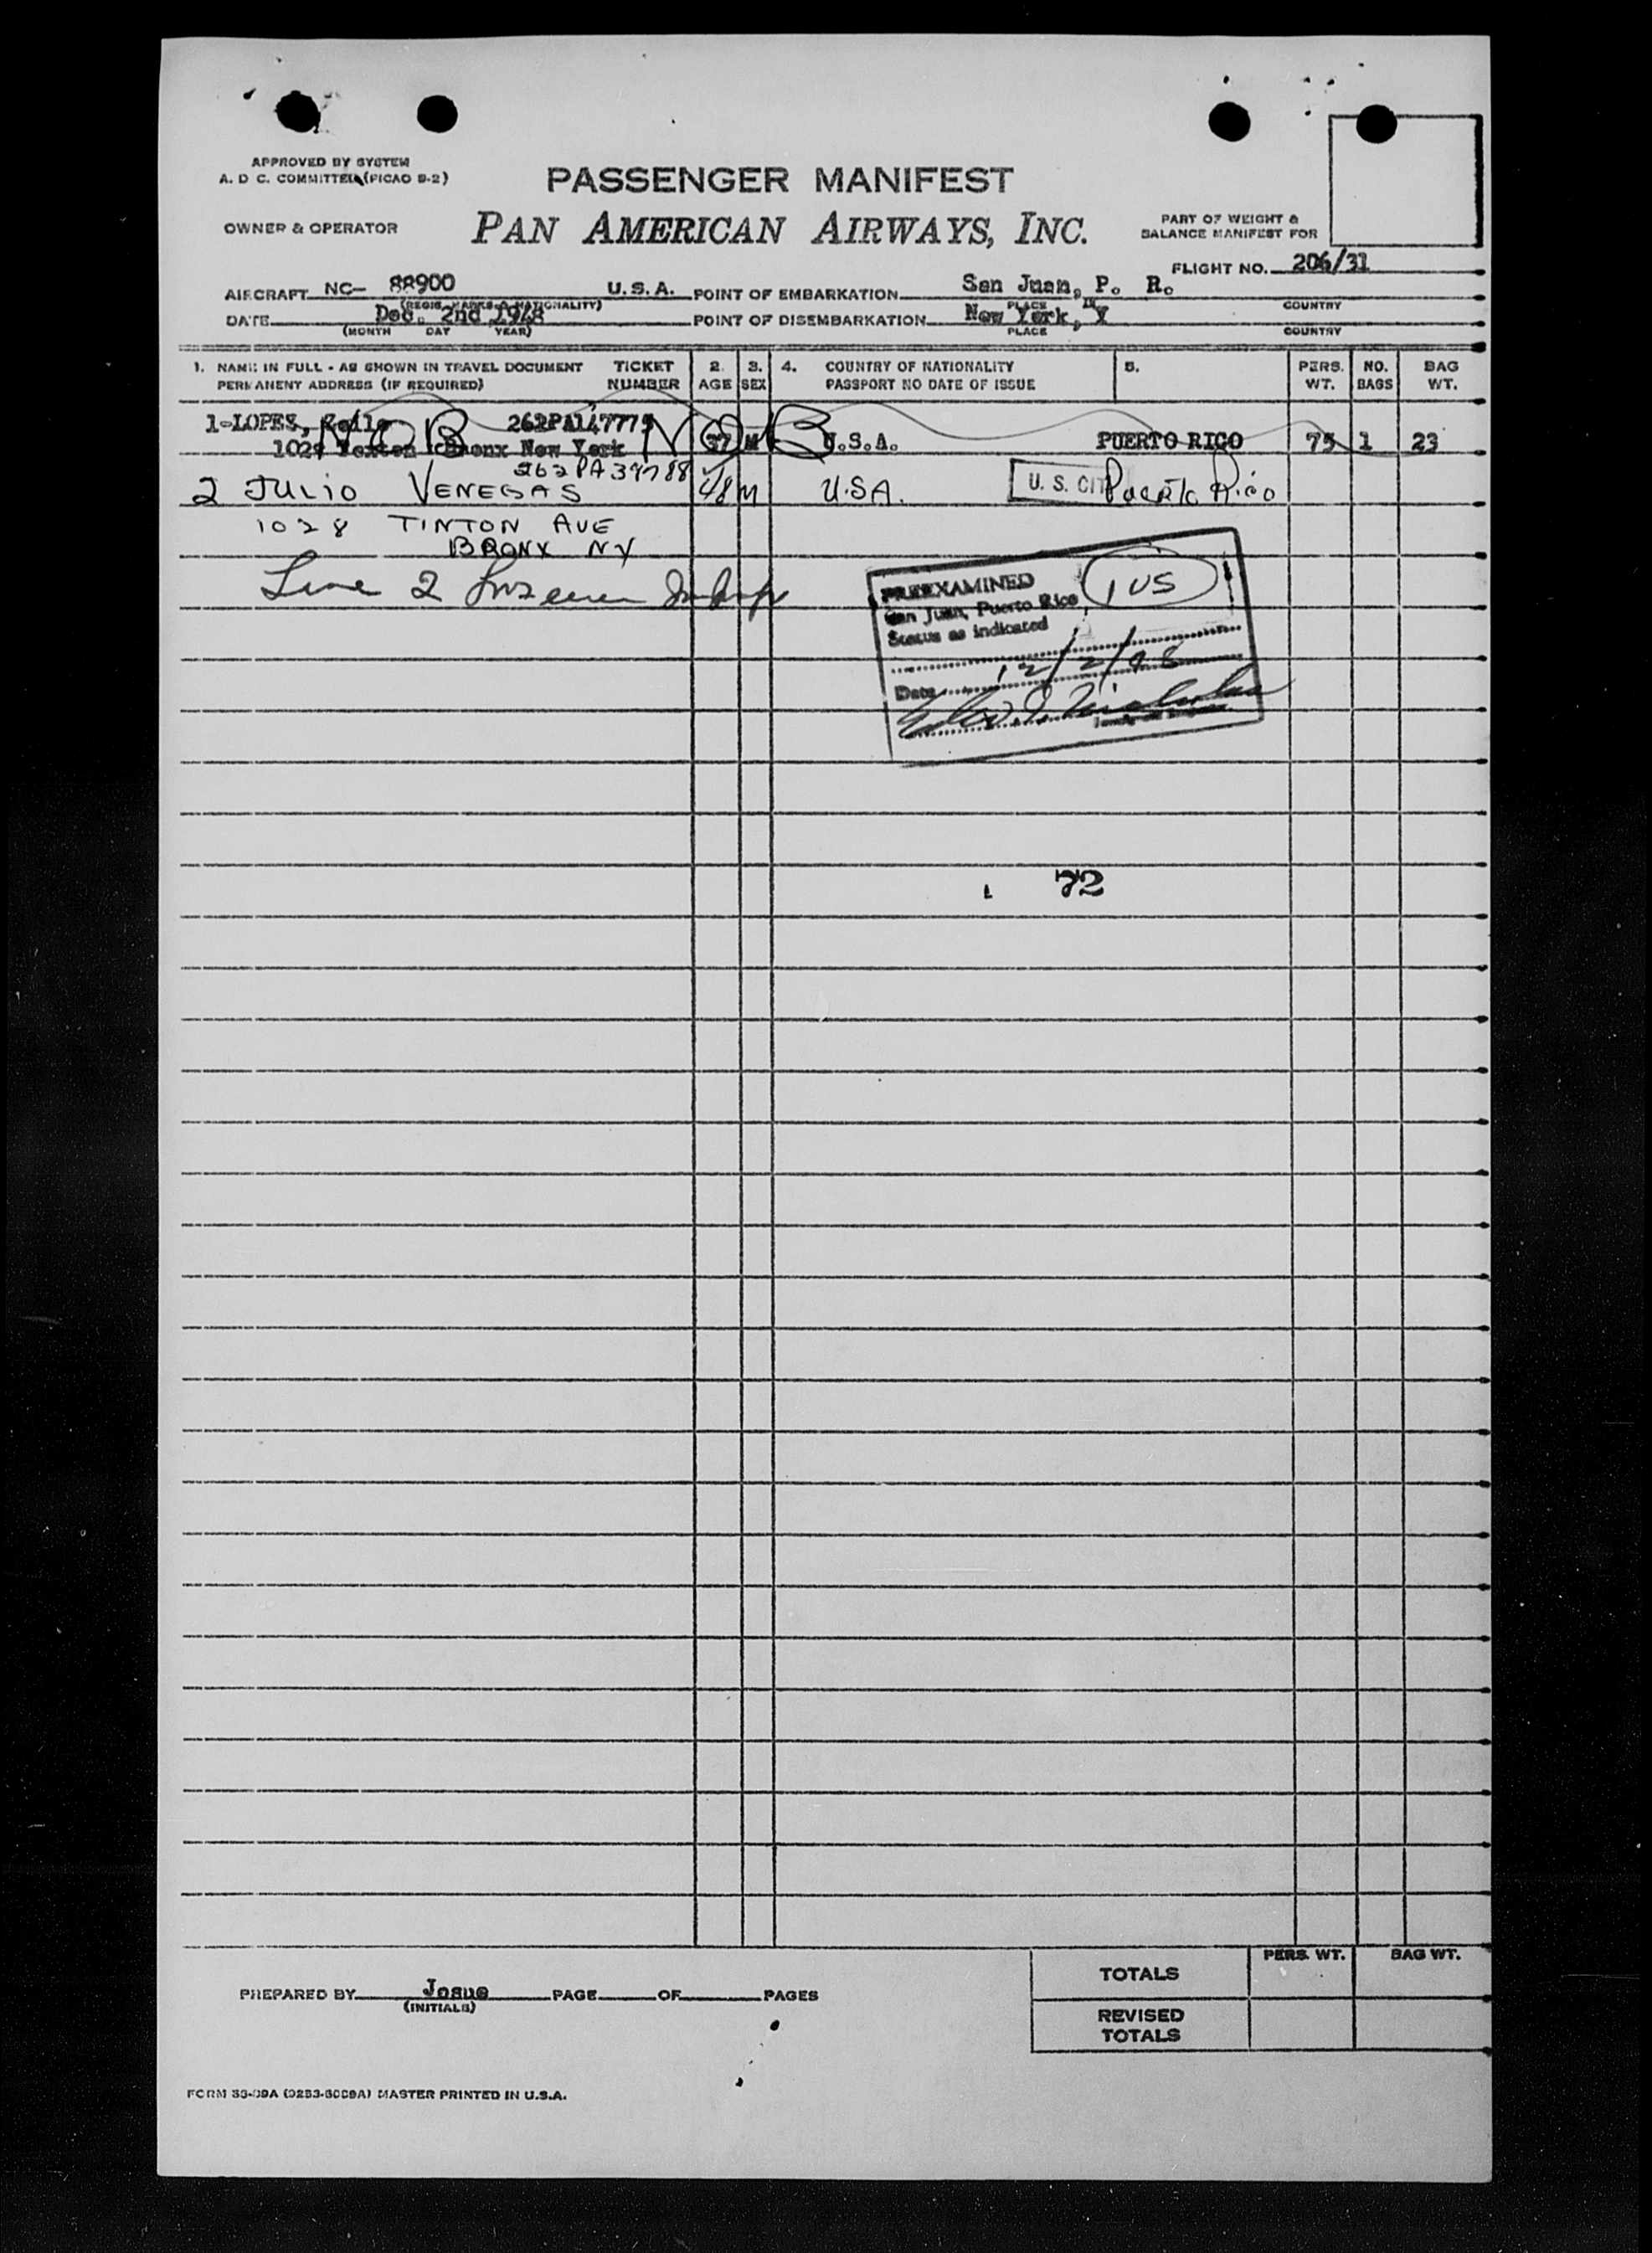 APPROVED BY SYSTEM
A. D C. COMMITTEE (PICAO B-2)
PASSENGER MANIFEST
OWNER & OPERATOR
PAN AMERICAN AIRWAYS, INC.
PART OF WEIGHT &
BALANCE MANIFEST FOR
FLIGHT NO. 206/31
AIRCRAFT NC- 88900 U.S.A. POINT OF EMBARKATION San Juan, P. R.
(REGIS. MARKS & NATIONALITY) PLACE COUNTRY
DATE Dec. 2nd 1948 POINT OF DISEMBARKATION New York,
(MONTH DAY YEAR) PLACE COUNTRY
1. NAME IN FULL - AS SHOWN IN TRAVEL DOCUMENT TICKET 2. 3. 4. COUNTRY OF NATIONALITY 5. PERS. NO. BAG
PERMANENT ADDRESS (IF REQUIRED) NUMBER AGE SEX PASSPORT NO DATE OF ISSUE WT. BAGS WT.
1-LOPES, 262PA147775
NOB NOB
Bronx New York 37 M U.S.A. PUERTO RICO 75 1 23
262PA39788
2 JULIO VENEGAS 48 M U.S.A. U. S. CIT Puerto Rico
1028 TINTON AVE
BRONX NY
Line 2
PREEXAMINED 1 US
San Juan, Puerto Rico
Status as indicated
Date 12/2/48
72
PREPARED BY Josue PAGE OF PAGES
(INITIALS)
PERS. WT. BAG WT.
TOTALS
REVISED
TOTALS
FORM (0253-6009A) MASTER PRINTED IN U.S.A.